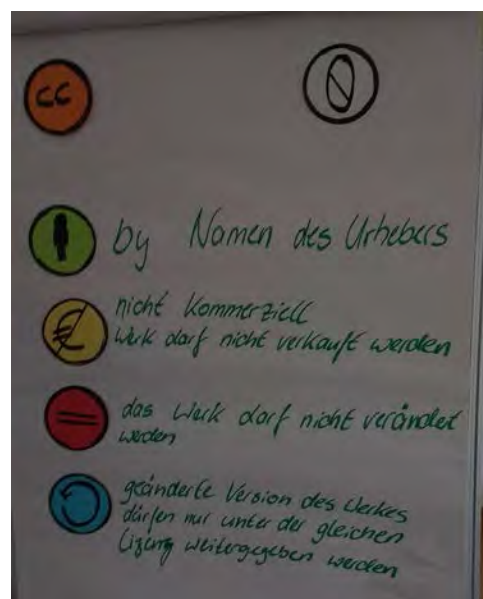 cc 0
by Namen des Urhebers
€
nicht Kommerziell
Werk darf nicht verkauft werden
=
das Werk darf nicht verändert
werden
geänderte Version des Werkes
dürfen nur unter der gleichen
Lizenz weitergegeben werden